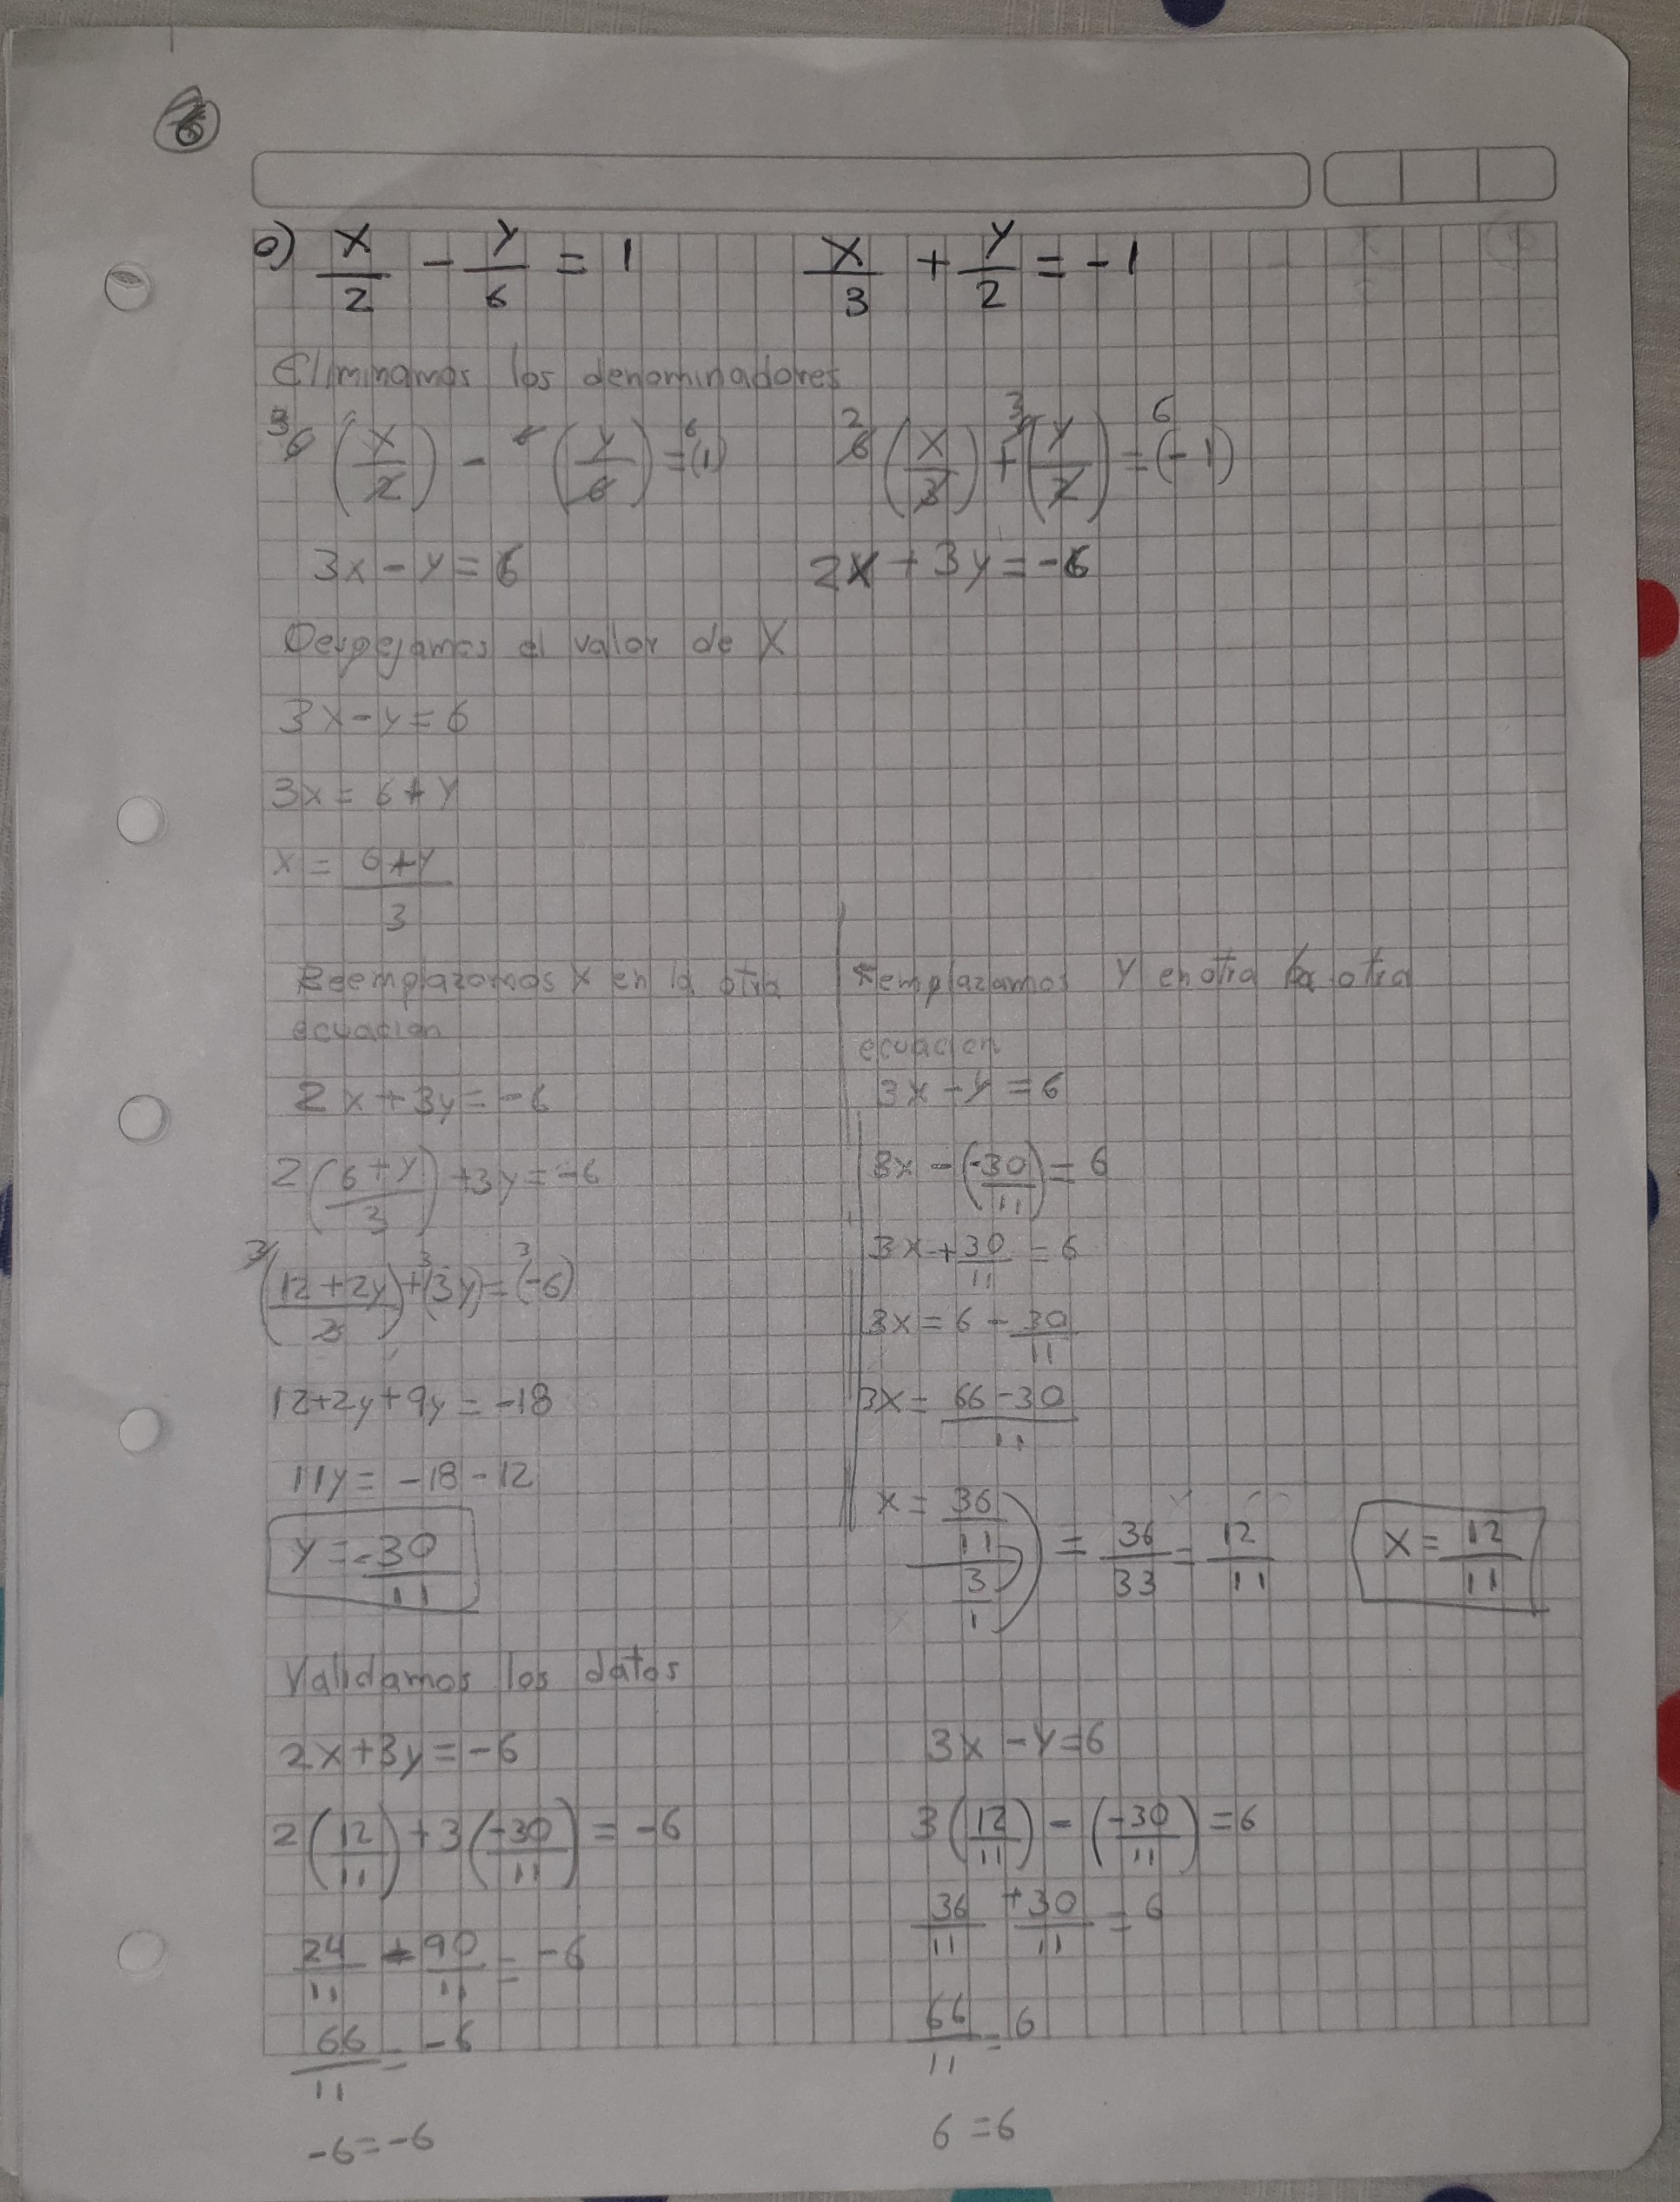 6
o) x/2 - y/6 = 1     x/3 + y/2 = -1
Eliminamos los denominadores
3 6 (x/2) - 6 (y/6) = 6 (1)     2 6 (x/3) + 3 (y/2) = 6 (-1)
3x - y = 6     2x + 3y = -6
Despejamos el valor de X
3x - y = 6
3x = 6 + y
x = 6+y/3
Reemplazamos x en la otra
ecuacion
2x + 3y = -6
2(6+y/3) + 3y = -6
3(12+2y/3) + 3(3y) = 3(-6)
12+2y+9y = -18
11y = -18 - 12
y = -30/11
Remplazamos Y en otra la otra
ecuacion
3x - y = 6
3x - (-30/11) = 6
3x + 30/11 = 6
3x = 6 - 30/11
3x = 66-30/11
x = 36/11 / 3/1 = 36/33 = 12/11     x = 12/11
Validamos los datos
2x+3y = -6
2(12/11) + 3(-30/11) = -6
24/11 - 90/11 = -6
66/11 = -6
-6 = -6
3x - y = 6
3(12/11) - (-30/11) = 6
36/11 + 30/11 = 6
66/11 = 6
6 = 6